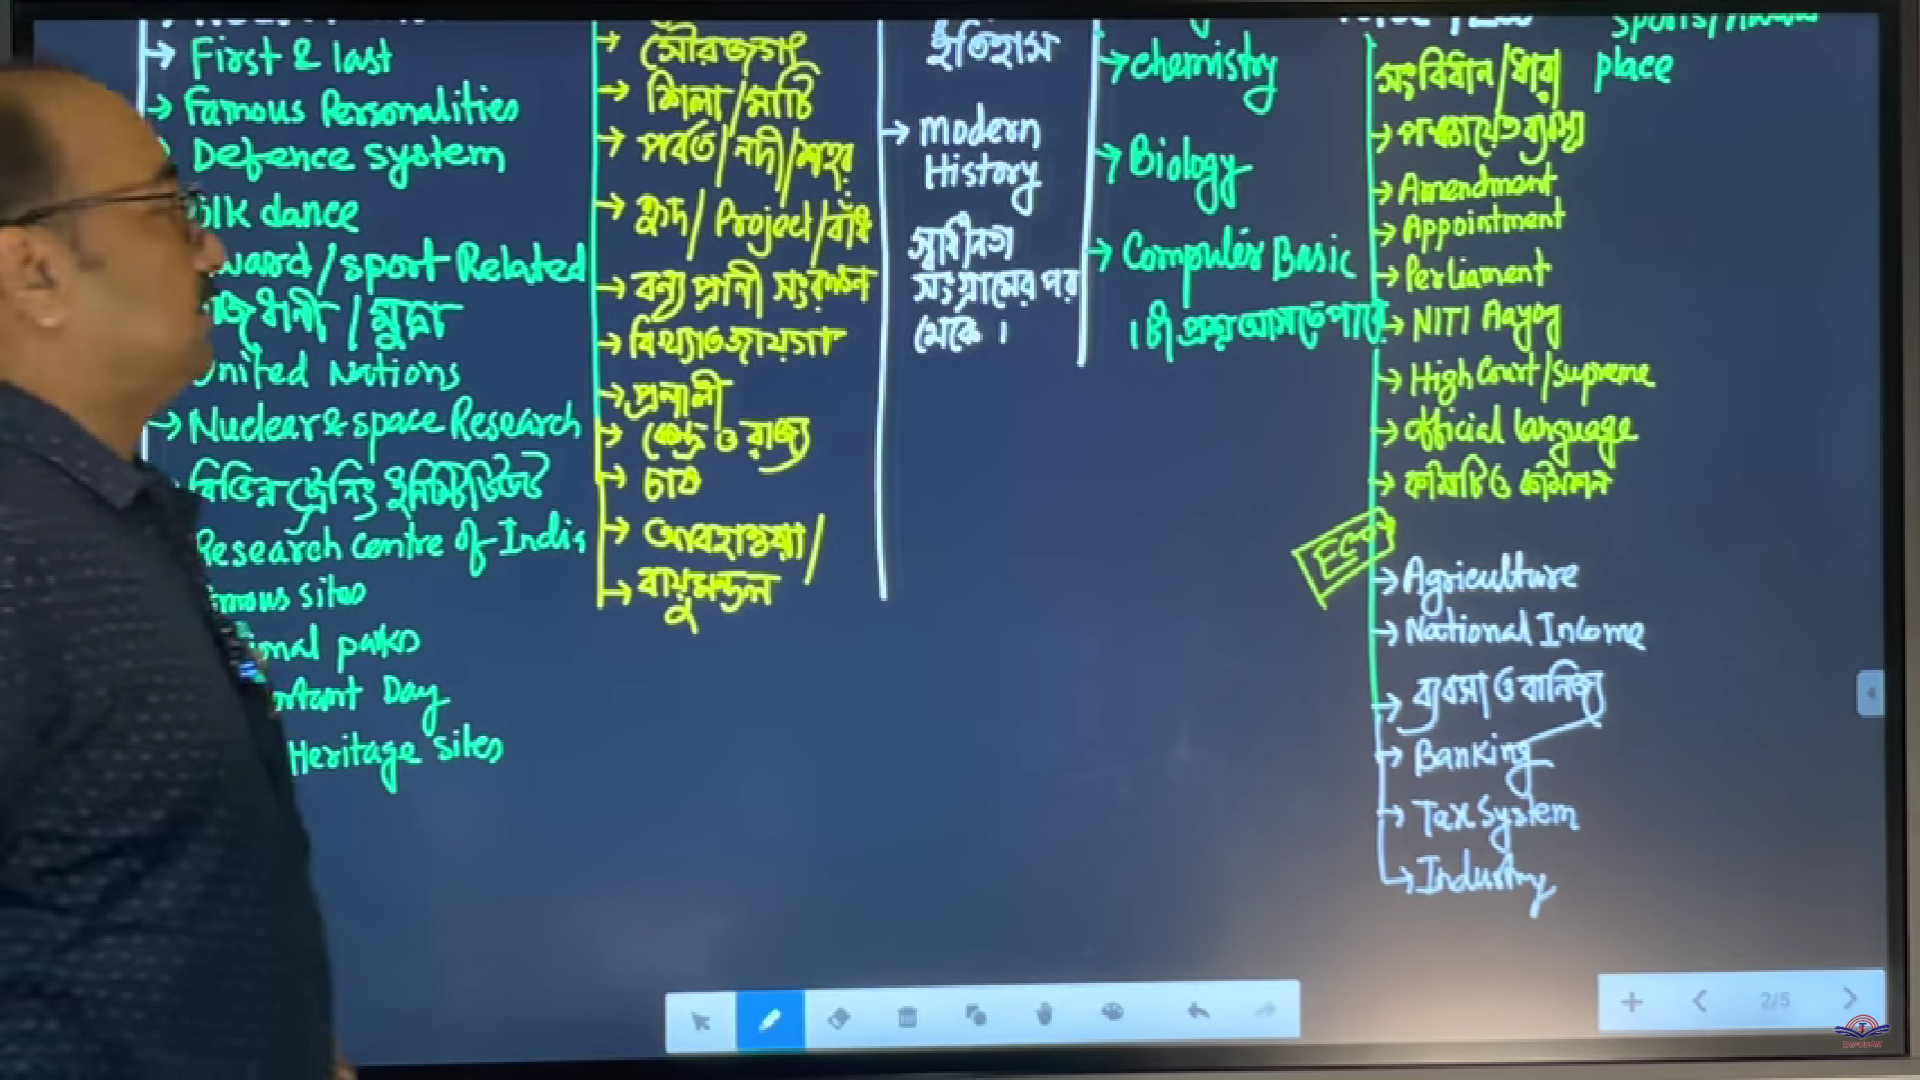 → First & last
→ Famous Personalities
Defence system
olk dance
ward/sport Related
জধানী / মুদ্রা
United Nations
→ Nuclear & space Research
বিভিন্ন ট্রেনিং ইনিস্টিটিউট
Research centre of India
mous sites
onal parks
ortant Day
Heritage sites
→ সৌরজগৎ
→ শিলা/মাটি
→ পর্বত/নদী/শহর
→ হ্রদ/Project/বাঁধ
→ বন্য প্রানী সংরক্ষন
→ বিখ্যাত জায়গা
→ প্রনালী
→ কেন্দ্র ও রাজ্য
→ চাষ
→ আবহাওয়া/
→ বায়ুমন্ডল
ইতিহাস
→ Modern
History
স্বাধীনতা
সংগ্রামের পর
থেকে।
→ chemistry
→ Biology
→ Computer Basic
1টা প্রশ্ন আসতে পারে
সংবিধান/ধারা
→ পঞ্চায়েত ব্যবস্থা
→ Amendment
→ Appointment
→ Perliament
→ NITI Aayog
→ High Court/supreme
→ official language
→ কমিটি ও কমিশন
ECO
→ Agriculture
→ National Income
→ ব্যবসা ও বানিজ্য
→ Banking
→ Tax System
→ Industry
sports/
place
2/5
TAPOBAN